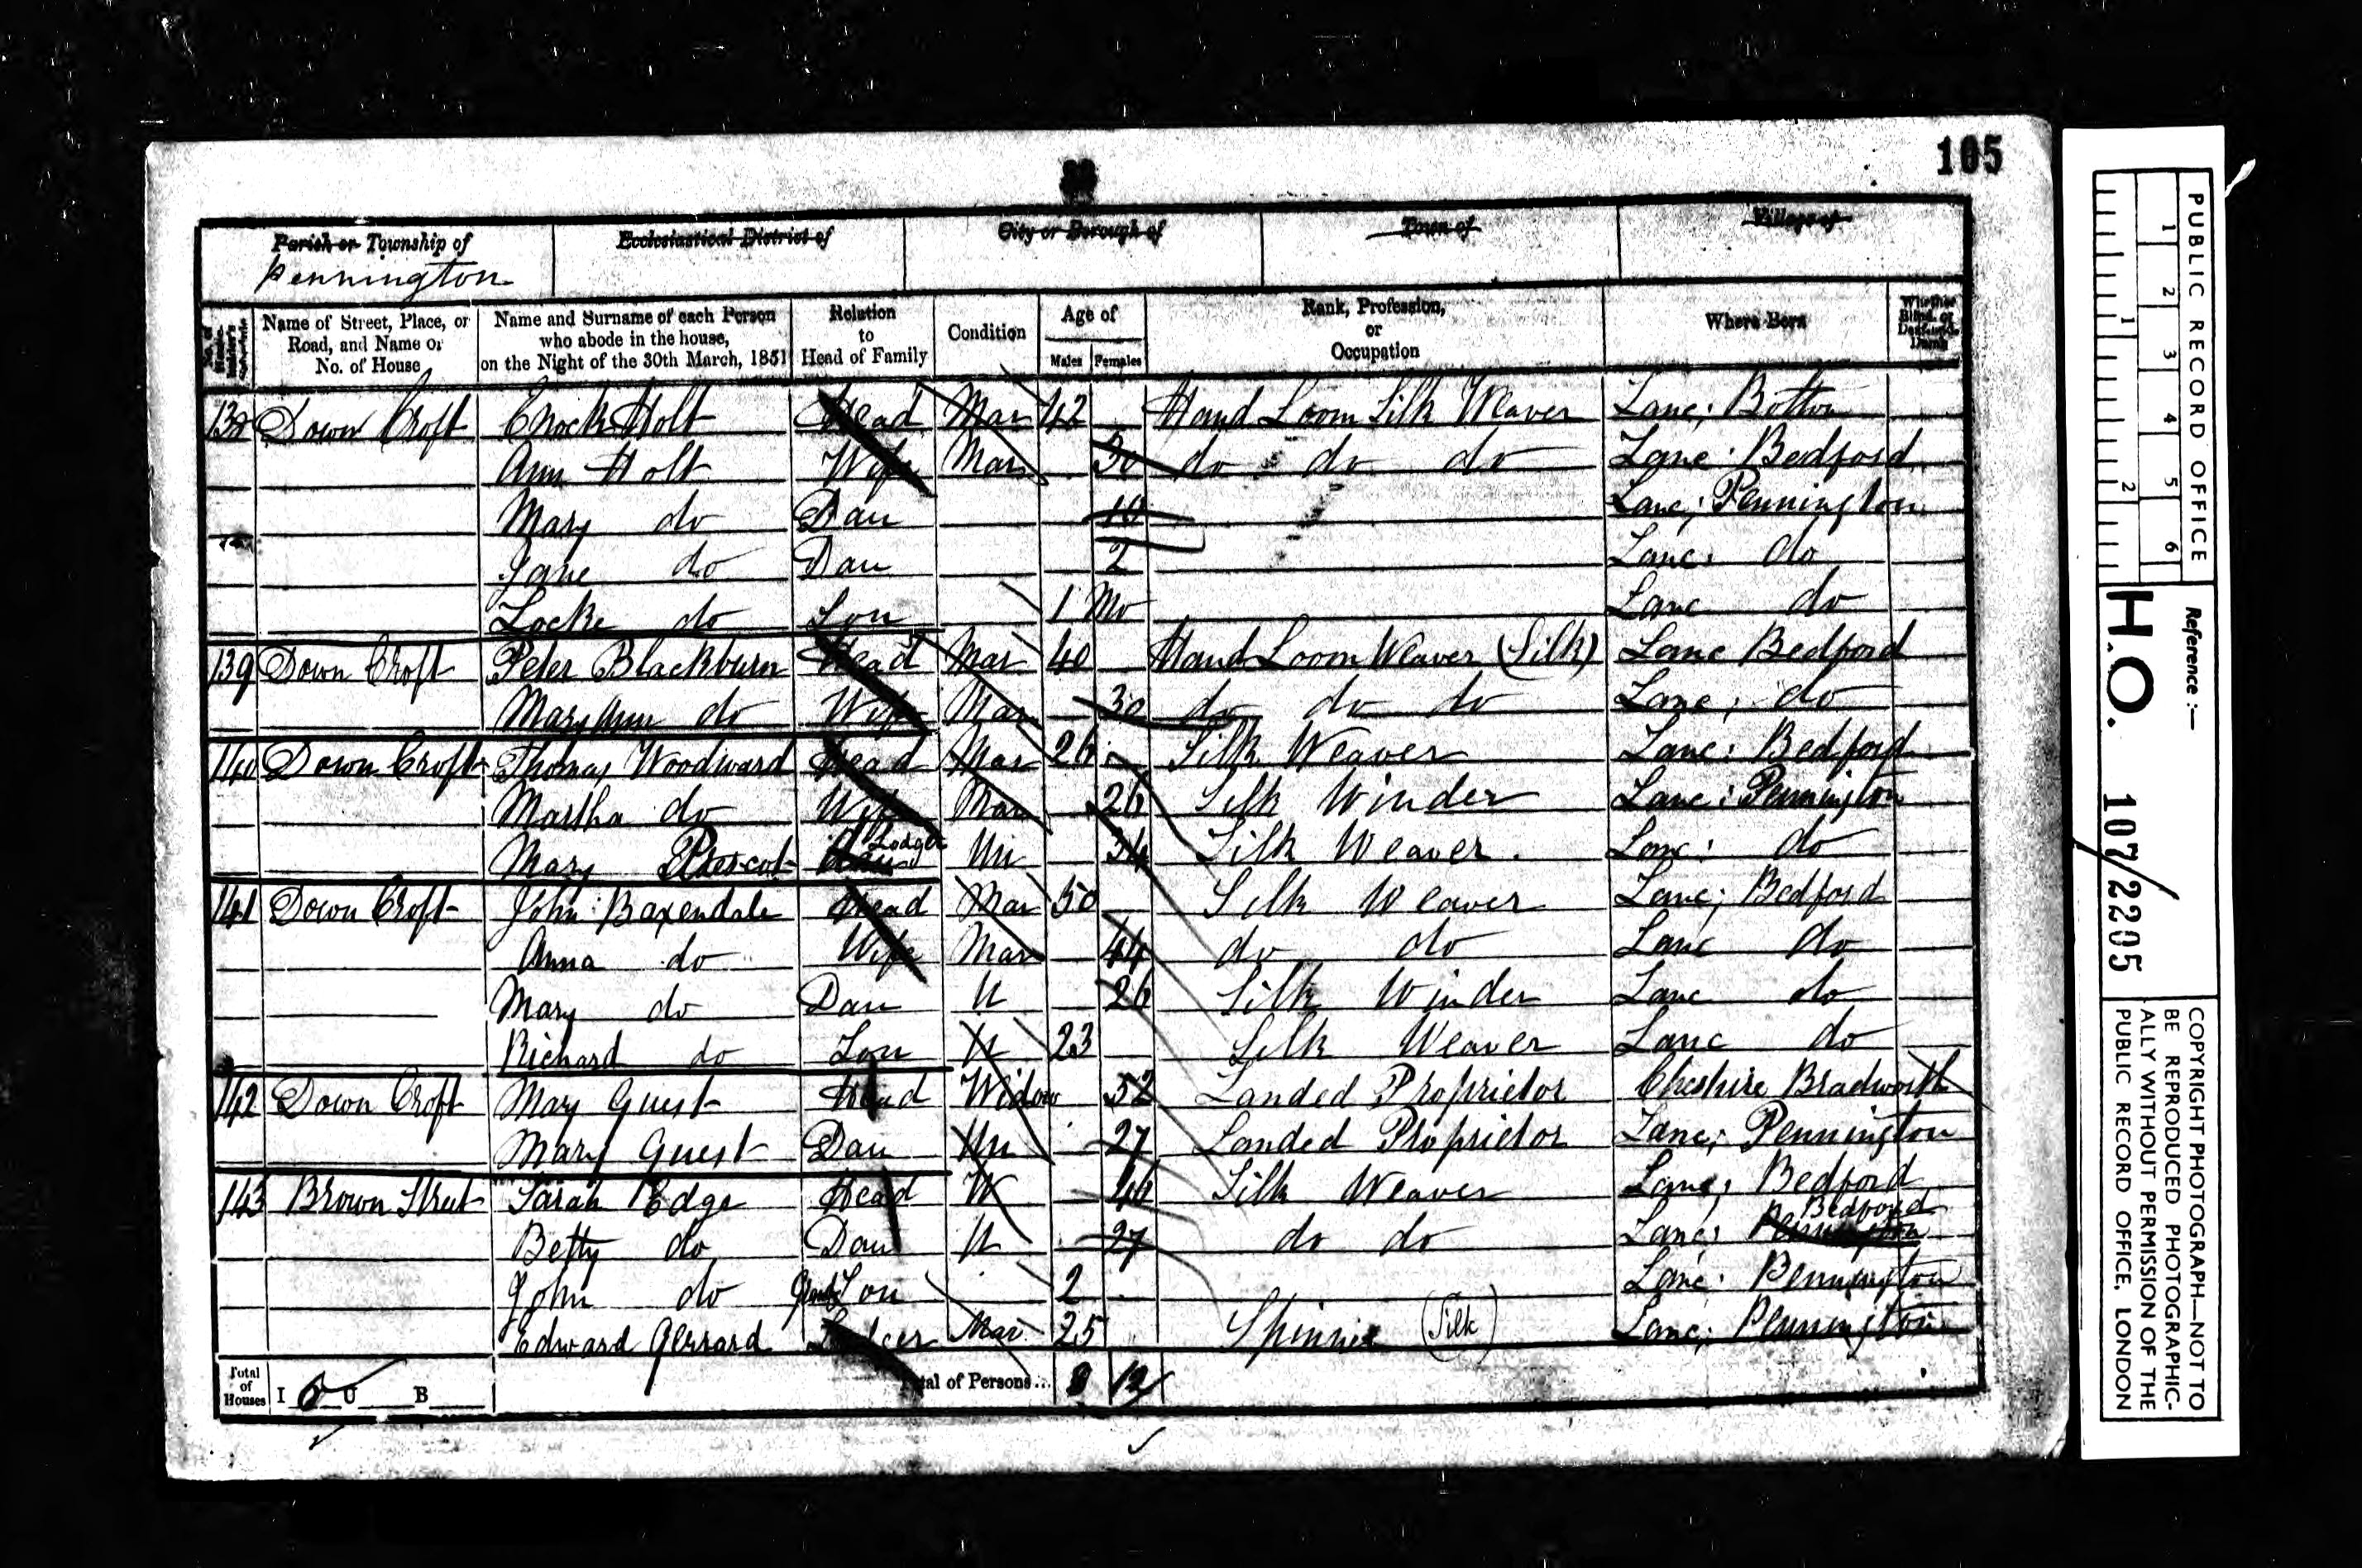 105
Parish or Township of
Pennington
Ecclesiastical District of
City or Borough of
Town of
Village of
No. of House-holder's Schedule
Name of Street, Place, or Road, and Name or No. of House
Name and Surname of each Person who abode in the house, on the Night of the 30th March, 1851
Relation to Head of Family
Condition
Age of
Males Females
Rank, Profession, or Occupation
Where Born
Whether Blind, or Deaf-and-Dumb
138 Down Croft Holt Head Mar 42 Hand Loom Silk Weaver Lanc: Bolton
Ann Holt Wife Mar 30 do do do Lanc: Bedford
Mary do Dau 10 Lanc; Pennington
Jane do Dau 2 Lanc: do
Locke do Son 1 Mo Lanc do
139 Down Croft Peter Blackburn Head Mar 40 Hand Loom Weaver (Silk) Lanc Bedford
Mary Ann do Wife Mar 30 do do do Lanc; do
140 Down Croft Thomas Woodward Head Mar 26 Silk Weaver Lanc: Bedford
Martha do Wife Mar 26 Silk Winder Lanc: Pennington
Mary Prescot Lodger Un 34 Silk Weaver. Lanc: do
141 Down Croft John Baxendale Head Mar 50 Silk Weaver Lanc; Bedford
Anna do Wife Mar 44 do do Lanc do
Mary do Dau U 26 Silk Winder Lanc do
Richard do Son U 23 Silk Weaver Lanc do
142 Down Croft Mary Guest Head Widow 52 Landed Proprietor Cheshire Bradworth
Mary Guest Dau Un 27 Landed Proprietor Lanc; Pennington
143 Brown Street Sarah Edge Head W 46 Silk Weaver Lanc; Bedford
Betty do Dau U 27 do do Lanc: Pennington Bedford
John do Grand Son 2 Lanc: Pennington
Edward Gerrard Lodger Mar 25 Spinner (Silk) Lanc; Pennington
Total of Houses I 6 U B Total of Persons... 8 12
PUBLIC RECORD OFFICE
1 2 3 4 5 6
1 2
Reference :—
H.O. 107/2205
COPYRIGHT PHOTOGRAPH—NOT TO
BE REPRODUCED PHOTOGRAPHIC-
ALLY WITHOUT PERMISSION OF THE
PUBLIC RECORD OFFICE, LONDON